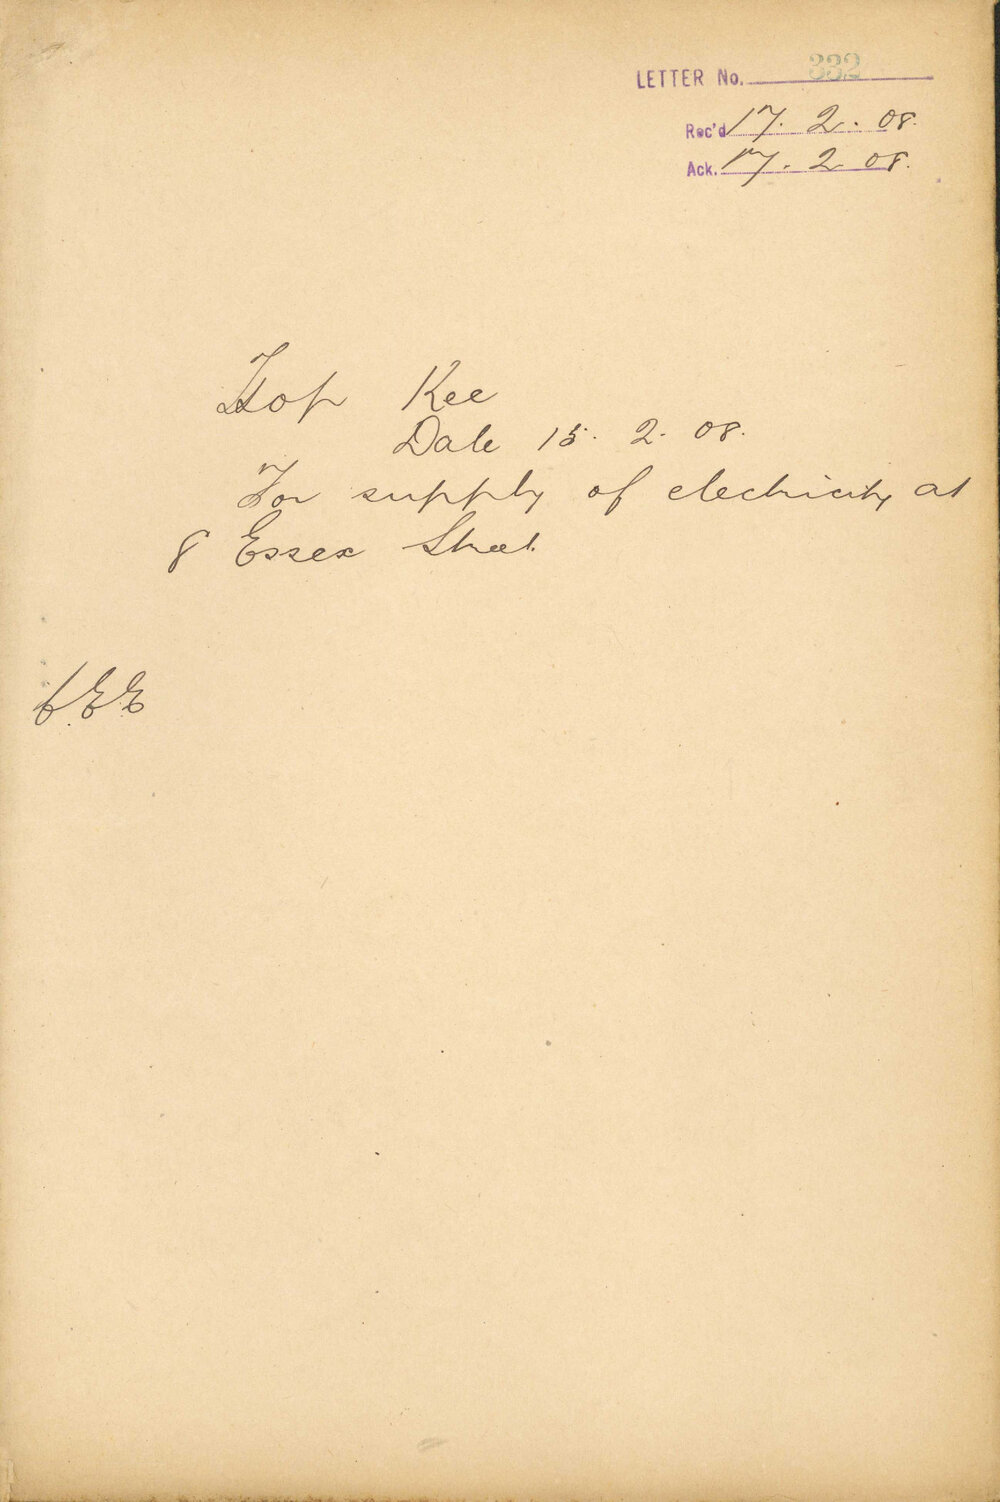 LETTER No. 332
Rec'd 17. 2. 08.
Ack. 17. 2. 08.
Hop Kee
Date 15. 2. 08.
For supply of electricity at
8 Essex Street
C.E.E